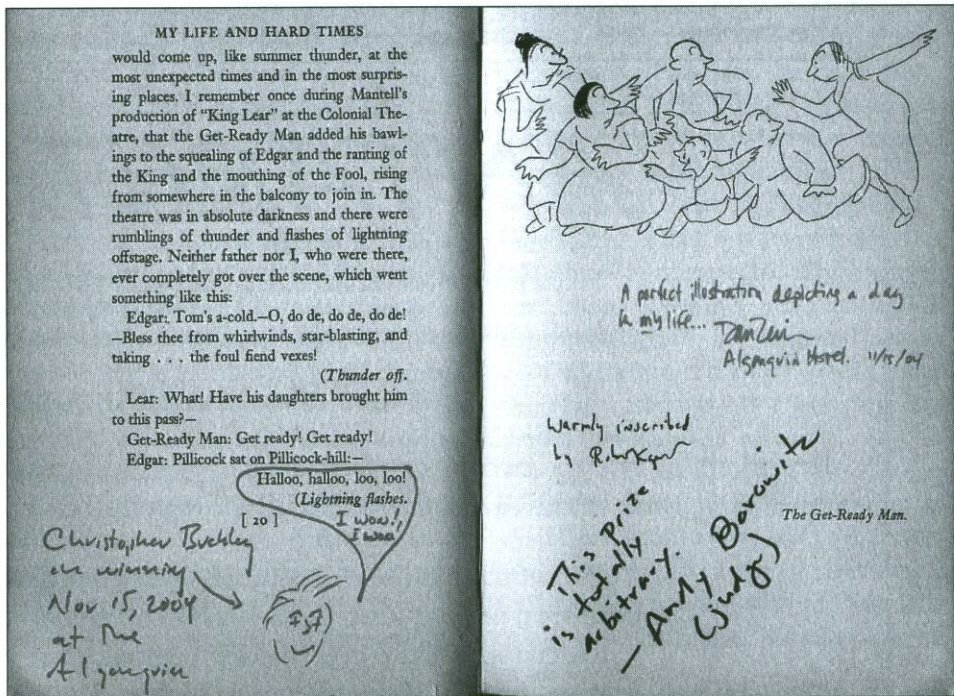 MY LIFE AND HARD TIMES
would come up, like summer thunder, at the
most unexpected times and in the most surpris-
ing places. I remember once during Mantell's
production of "King Lear" at the Colonial The-
atre, that the Get-Ready Man added his bawl-
ings to the squealing of Edgar and the ranting of
the King and the mouthing of the Fool, rising
from somewhere in the balcony to join in. The
theatre was in absolute darkness and there were
rumblings of thunder and flashes of lightning
offstage. Neither father nor I, who were there,
ever completely got over the scene, which went
something like this:
Edgar: Tom's a-cold.—O, do de, do de, do de!
—Bless thee from whirlwinds, star-blasting, and
taking . . . the foul fiend vexes!
(Thunder off.
Lear: What! Have his daughters brought him
to this pass?—
Get-Ready Man: Get ready! Get ready!
Edgar: Pillicock sat on Pillicock-hill:—
Halloo, halloo, loo, loo!
(Lightning flashes.
I won!,
I won
[ 20 ]
Christopher Buckley
on winning
Nov 15, 2004
at the
Algonquin
A perfect illustration depicting a day
in my life...
Algonquin Hotel. 11/15/04
Warmly inscribed
by
This Prize
is totally
arbitrary.
— Andy Borowitz
(judge)
The Get-Ready Man.